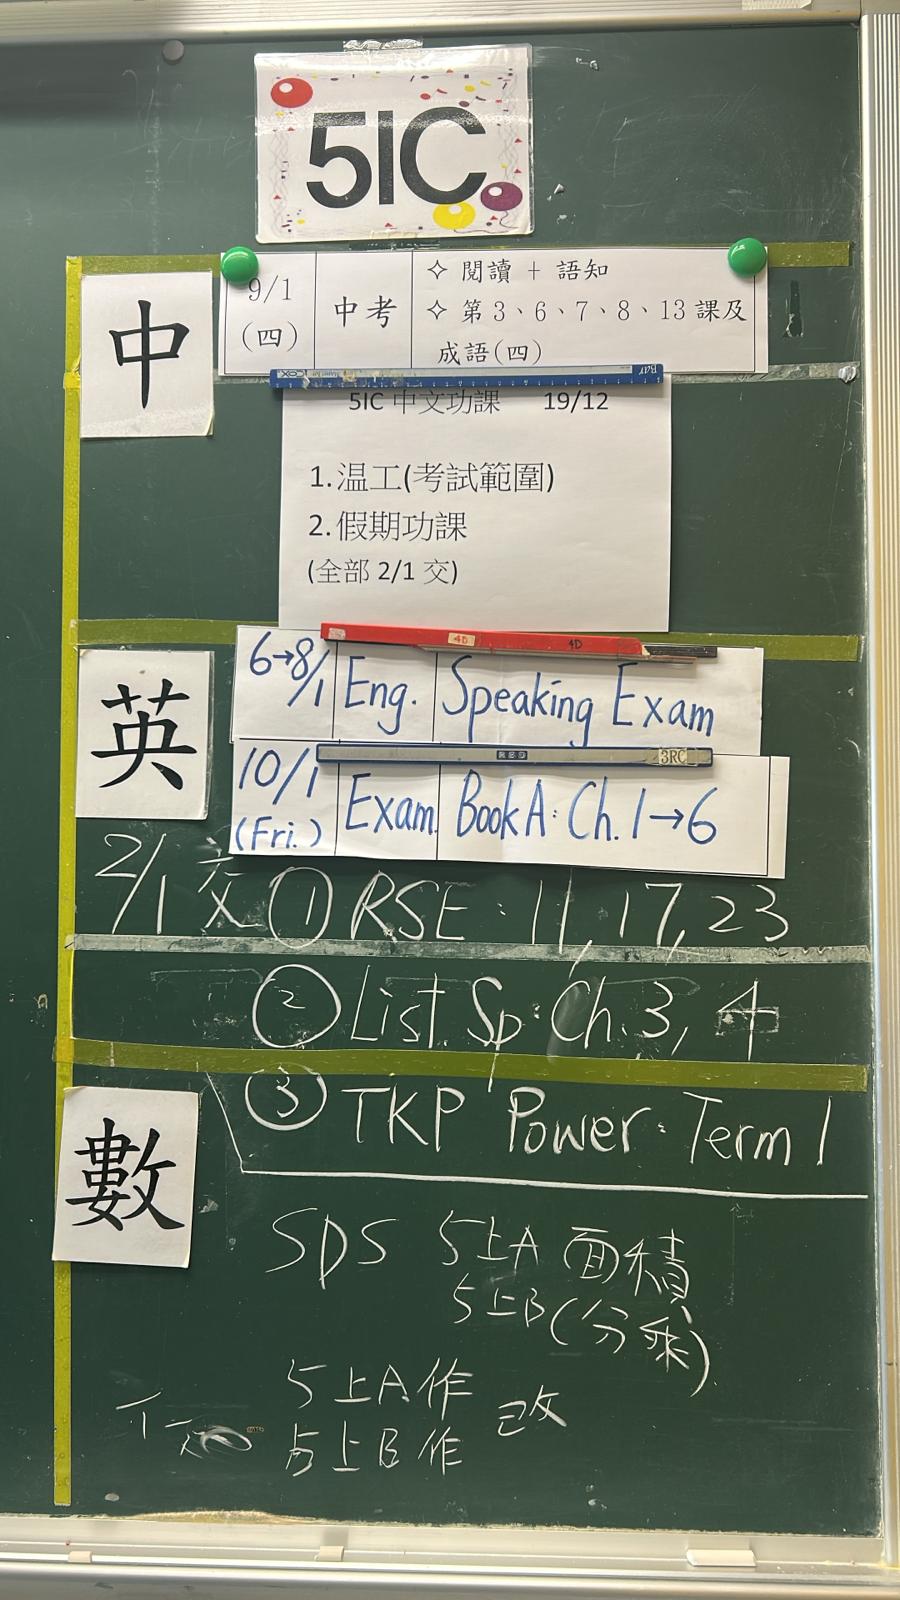 5IC
中
9/1
(四)
中考
✧ 閱讀 + 語知
✧ 第 3、6、7、8、13 課及
成語(四)
5IC 中文功課 19/12
1.温工(考試範圍)
2.假期功課
(全部 2/1 交)
英
6→8/1 Eng. Speaking Exam
10/1
(Fri.)
Exam. Book A: Ch. 1→6
2/1 交 ① RSE: 11, 17, 23
② List. Sp: Ch. 3, 4
③ TKP Power: Term 1
數
SDS 5上A 面積
5上B (分乘)
5上A作
5上B作
改
4D
4D
3RC